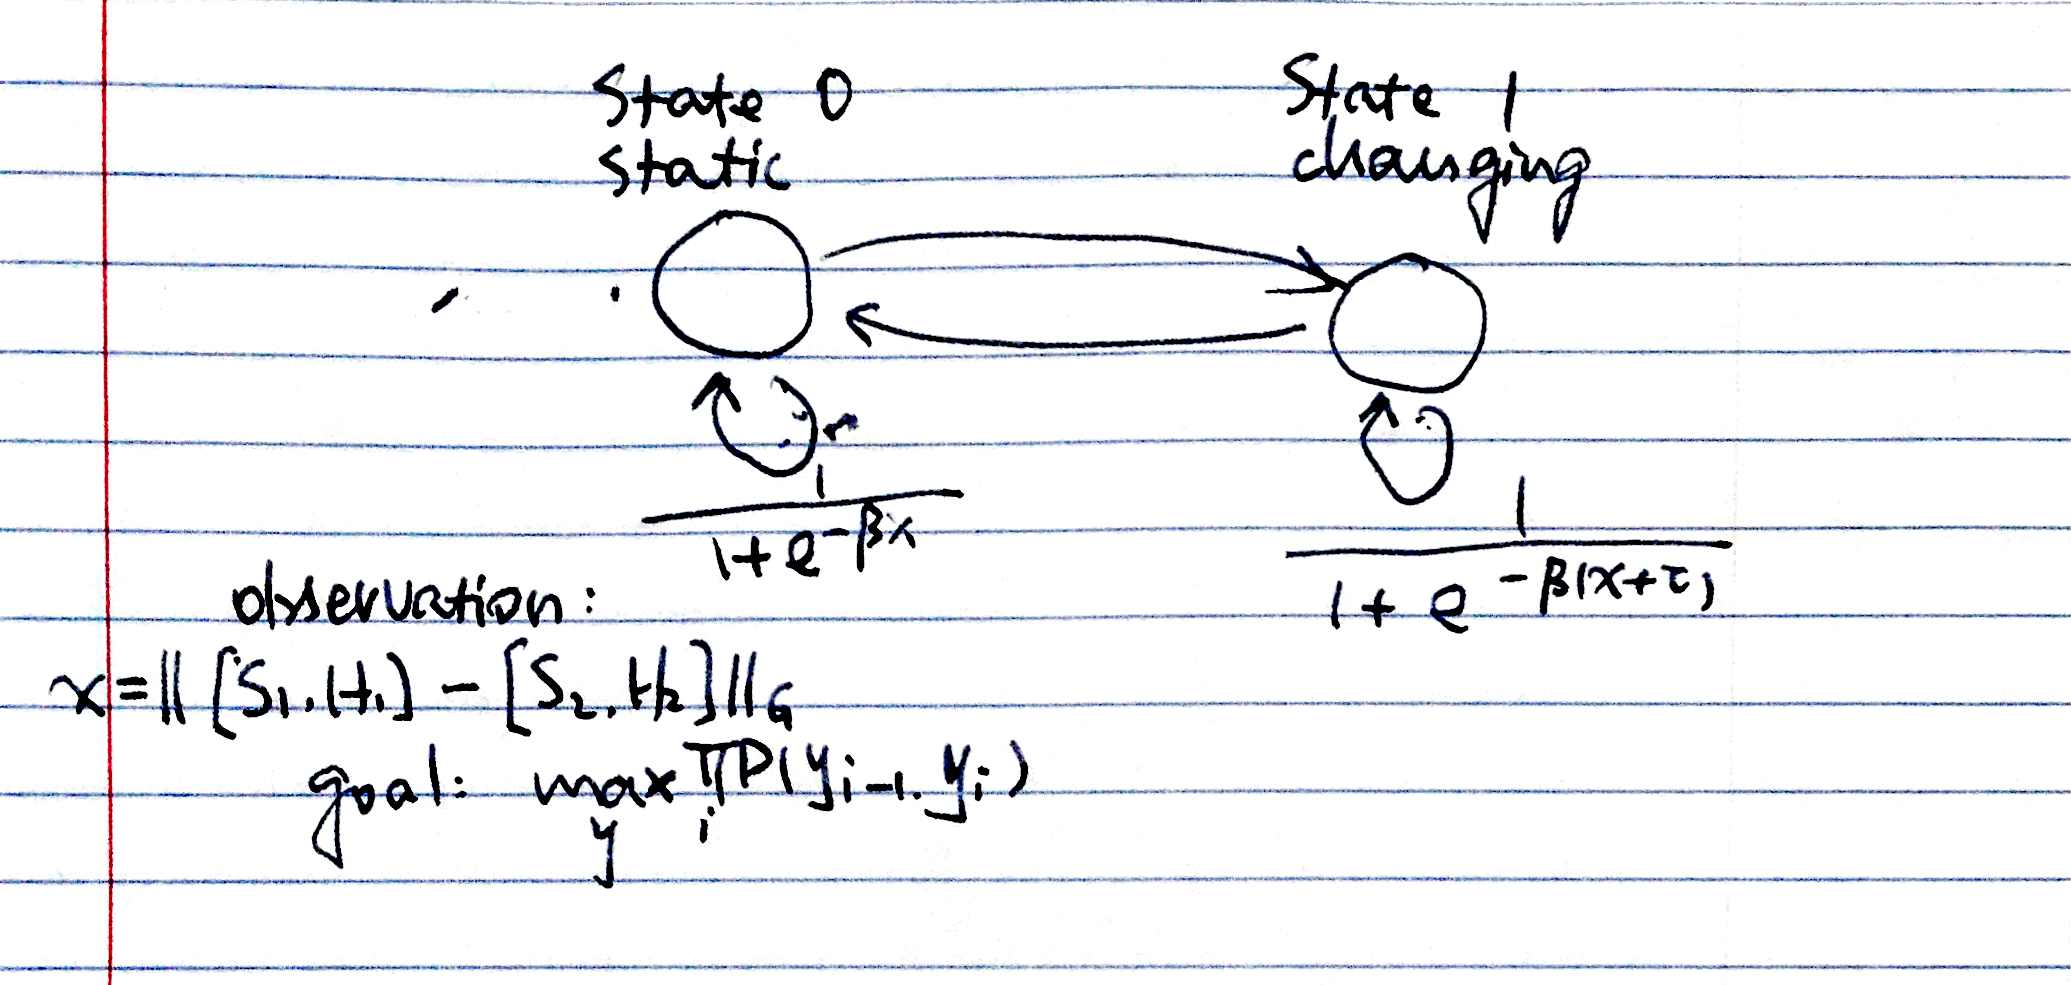 State 0
static
State 1
changing
1
1+e^-βx
1
1+e^-β(x+τ)
observation:
x=||[S₁,H₁]-[S₂,H₂]||_G
goal: max_y ∏_i P(y_i-1, y_i)